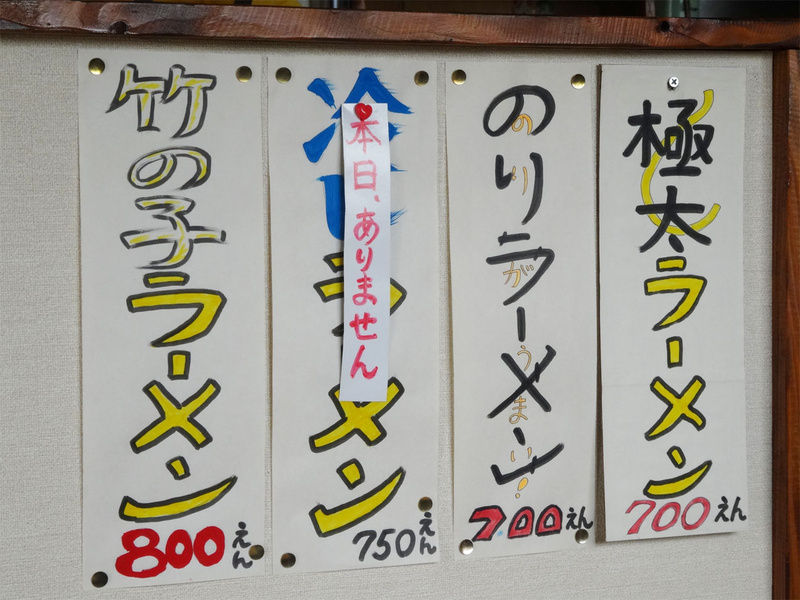 極太ラーメン
700えん
のりラーメン
のりがうまい!
700えん
冷しラーメン
本日、ありません
750えん
竹の子ラーメン
800えん